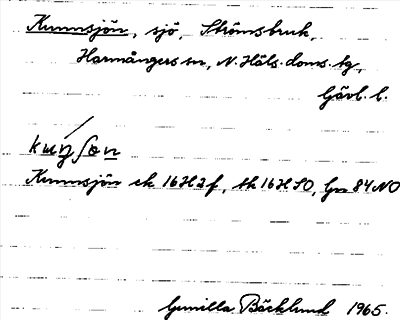 Kunnsjön, sjö, Strömsbruk,
Harmångers sn, N. Häls. doms. tg,
Gävl. l.
kuŋʃon
Kunnsjön ek 16H2f, tk 16H SO, Gn 84 NO
Gunilla Bäcklund 1965.